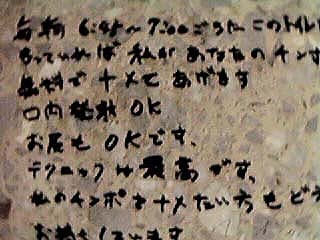 毎朝 6:45～7:00ごろに このトイレ
もっていれば 私が あなたの チンポ
無料で ナメて あげます
口内発射 OK
お尻も OKです、
テクニックは最高です。
私のチンポをナメたい方もどう
お待ちしています